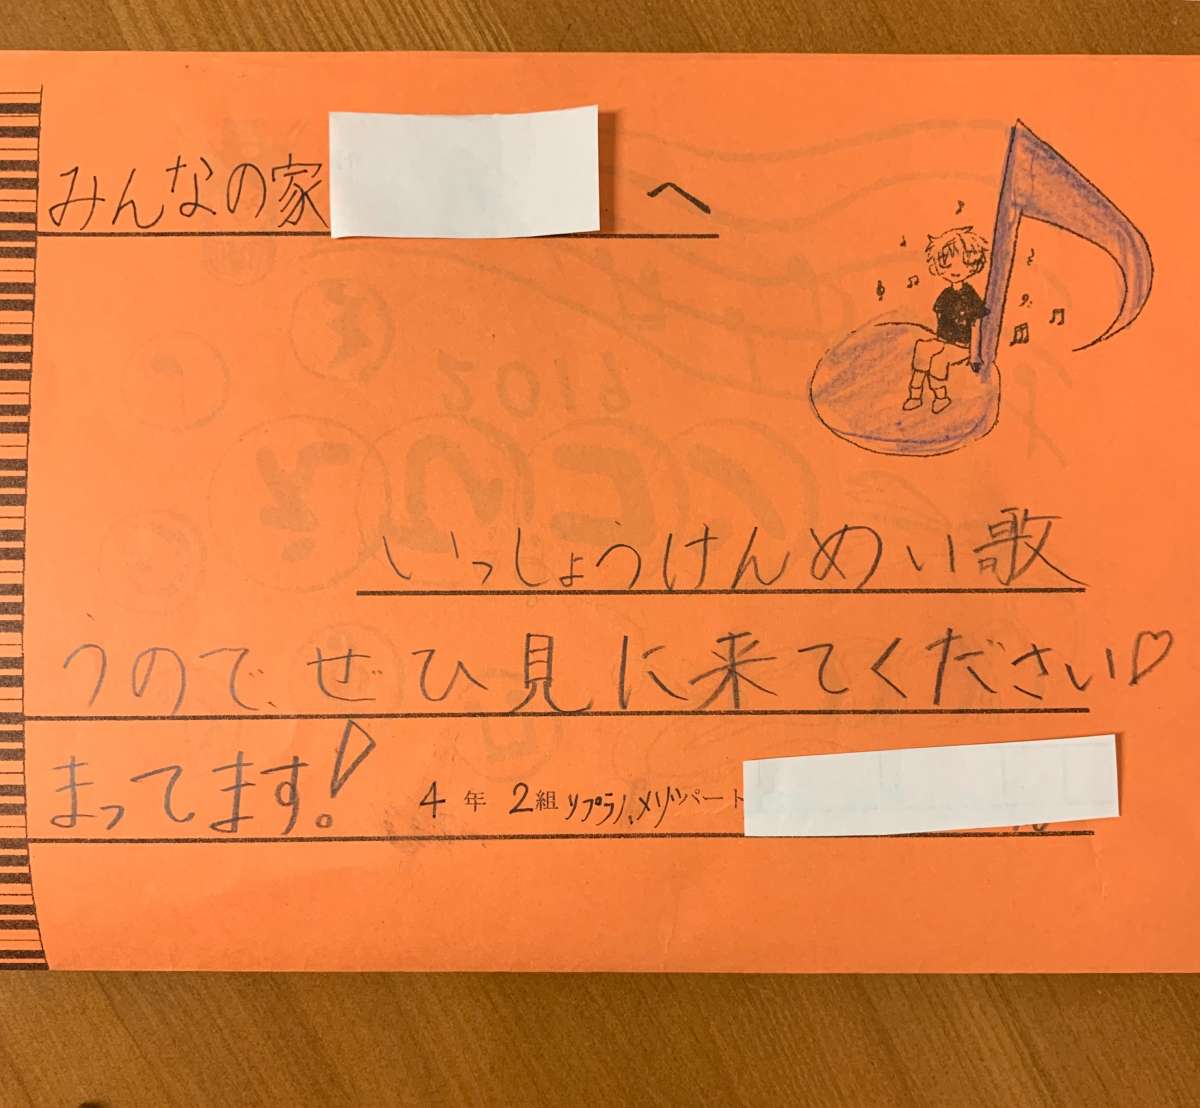 みんなの家
へ
いっしょうけんめい歌
うので、ぜひ見に来てください♡
まってます!
4年 2組 ソプラノ、メゾパート